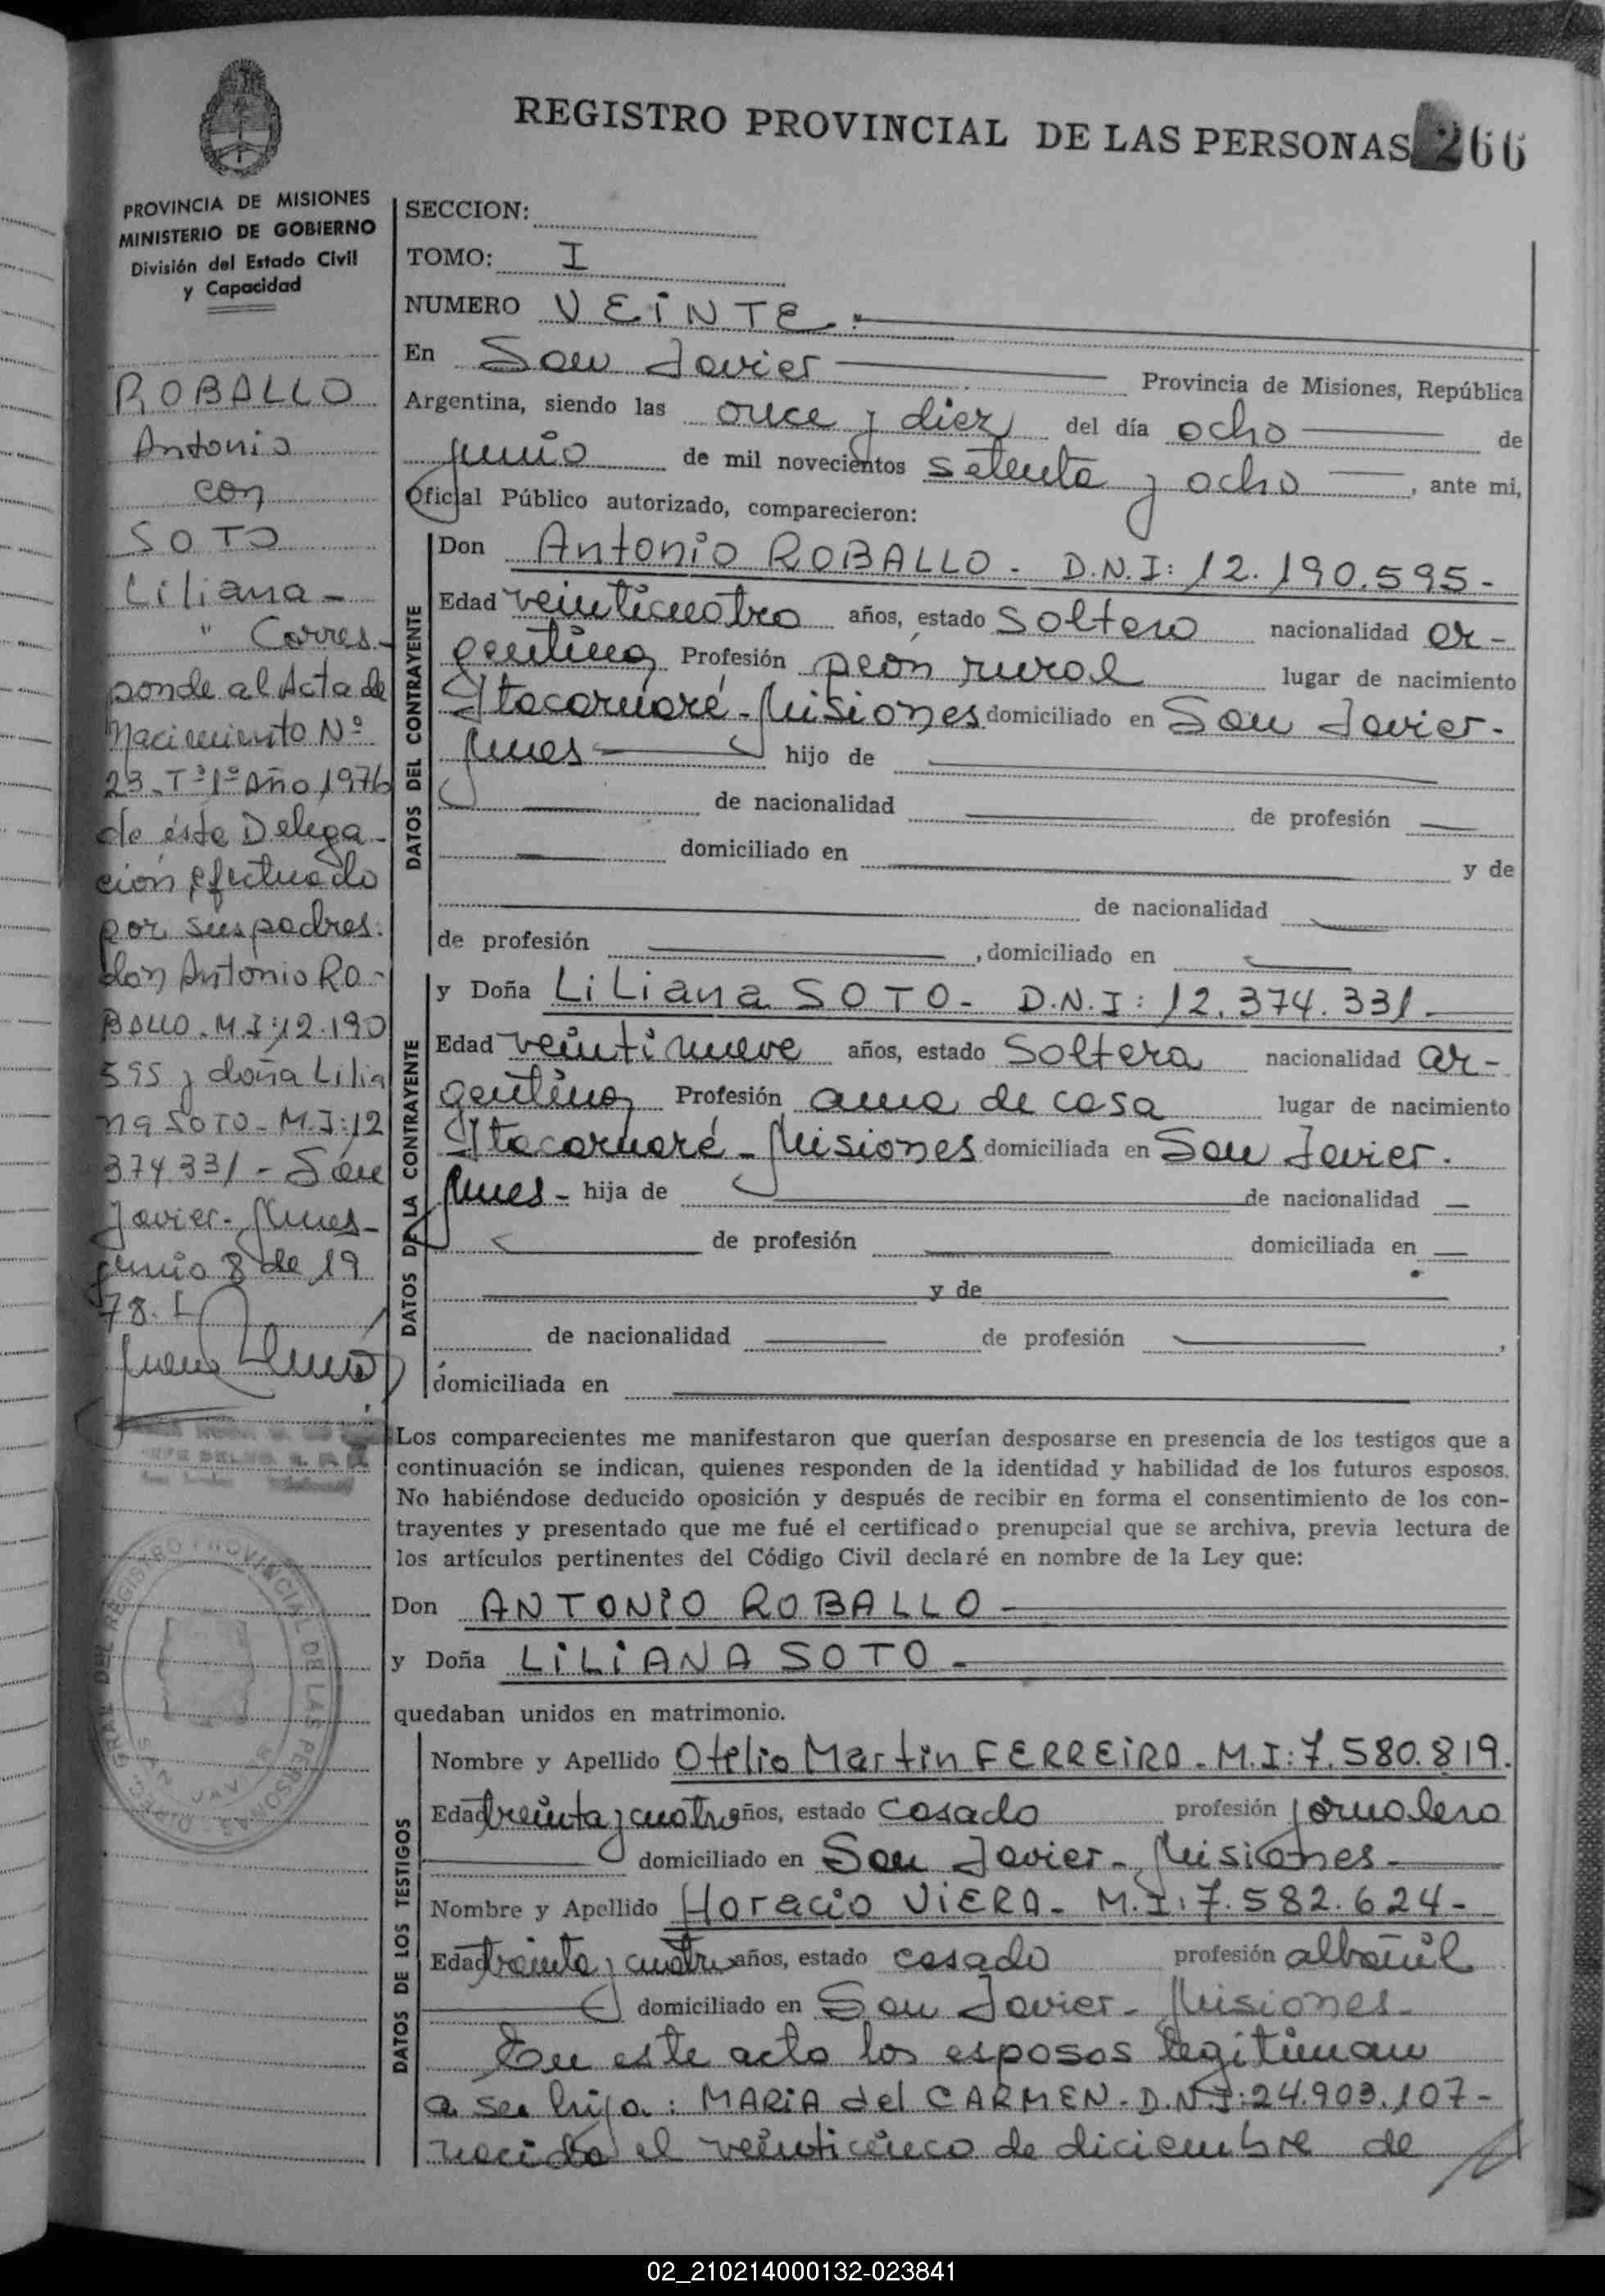 REGISTRO PROVINCIAL DE LAS PERSONAS 266
PROVINCIA DE MISIONES
MINISTERIO DE GOBIERNO
División del Estado Civil
y Capacidad
ROBALLO
Antonio
con
SOTO
Liliana -
" Corres-
ponde al Acta de
Nacimiento Nº
23 - Tº 1º Año 1976
de ésta Delega-
ción, efectuado
por sus padres:
don Antonio RO-
BALLO. M.I: 12.190
595 y doña Lilia
na SOTO - M.I: 12
374.331 - San
Javier - Mnes -
junio 8 de 19
78.
SECCION:
TOMO: I
NUMERO VEINTE.-
En San Javier Provincia de Misiones, República
Argentina, siendo las once y diez del día ocho de
junio de mil novecientos setenta y ocho , ante mi,
Oficial Público autorizado, comparecieron:
DATOS DEL CONTRAYENTE
Don Antonio ROBALLO - D.N.I: 12.190.595 -
Edad veinticuatro años, estado soltero nacionalidad ar-
gentina Profesión peón rural lugar de nacimiento
Itacaruaré - Misiones domiciliado en San Javier -
Mnes hijo de
de nacionalidad de profesión
domiciliado en y de
de nacionalidad
de profesión , domiciliado en
DATOS DE LA CONTRAYENTE
y Doña Liliana SOTO - D.N.I: 12.374.331 -
Edad veintinueve años, estado soltera nacionalidad ar-
gentina Profesión ama de casa lugar de nacimiento
Itacaruaré - Misiones domiciliada en San Javier.
Mnes - hija de de nacionalidad
de profesión domiciliada en
y de
de nacionalidad de profesión ,
domiciliada en
Los comparecientes me manifestaron que querían desposarse en presencia de los testigos que a
continuación se indican, quienes responden de la identidad y habilidad de los futuros esposos.
No habiéndose deducido oposición y después de recibir en forma el consentimiento de los con-
trayentes y presentado que me fué el certificado prenupcial que se archiva, previa lectura de
los artículos pertinentes del Código Civil declaré en nombre de la Ley que:
Don ANTONIO ROBALLO
y Doña LILIANA SOTO -
quedaban unidos en matrimonio.
DATOS DE LOS TESTIGOS
Nombre y Apellido Otelio Martin FERREIRO - M.I: 7.580.819.
Edad treinta y cuatro años, estado casado profesión jornalero
domiciliado en San Javier - Misiones -
Nombre y Apellido Horacio VIERA - M.I: 7.582.624 -
Edad treinta y cuatro años, estado casado profesión albañil
domiciliado en San Javier - Misiones -
En este acto los esposos legitiman
a su hija: MARIA del CARMEN - D.N.I: 24.903.107 -
nacida el veinticinco de diciembre de
DIREC. GRAL DEL REGISTRO PROVINCIAL DE LAS PERSONAS
SAN JAVIER
02_210214000132-023841